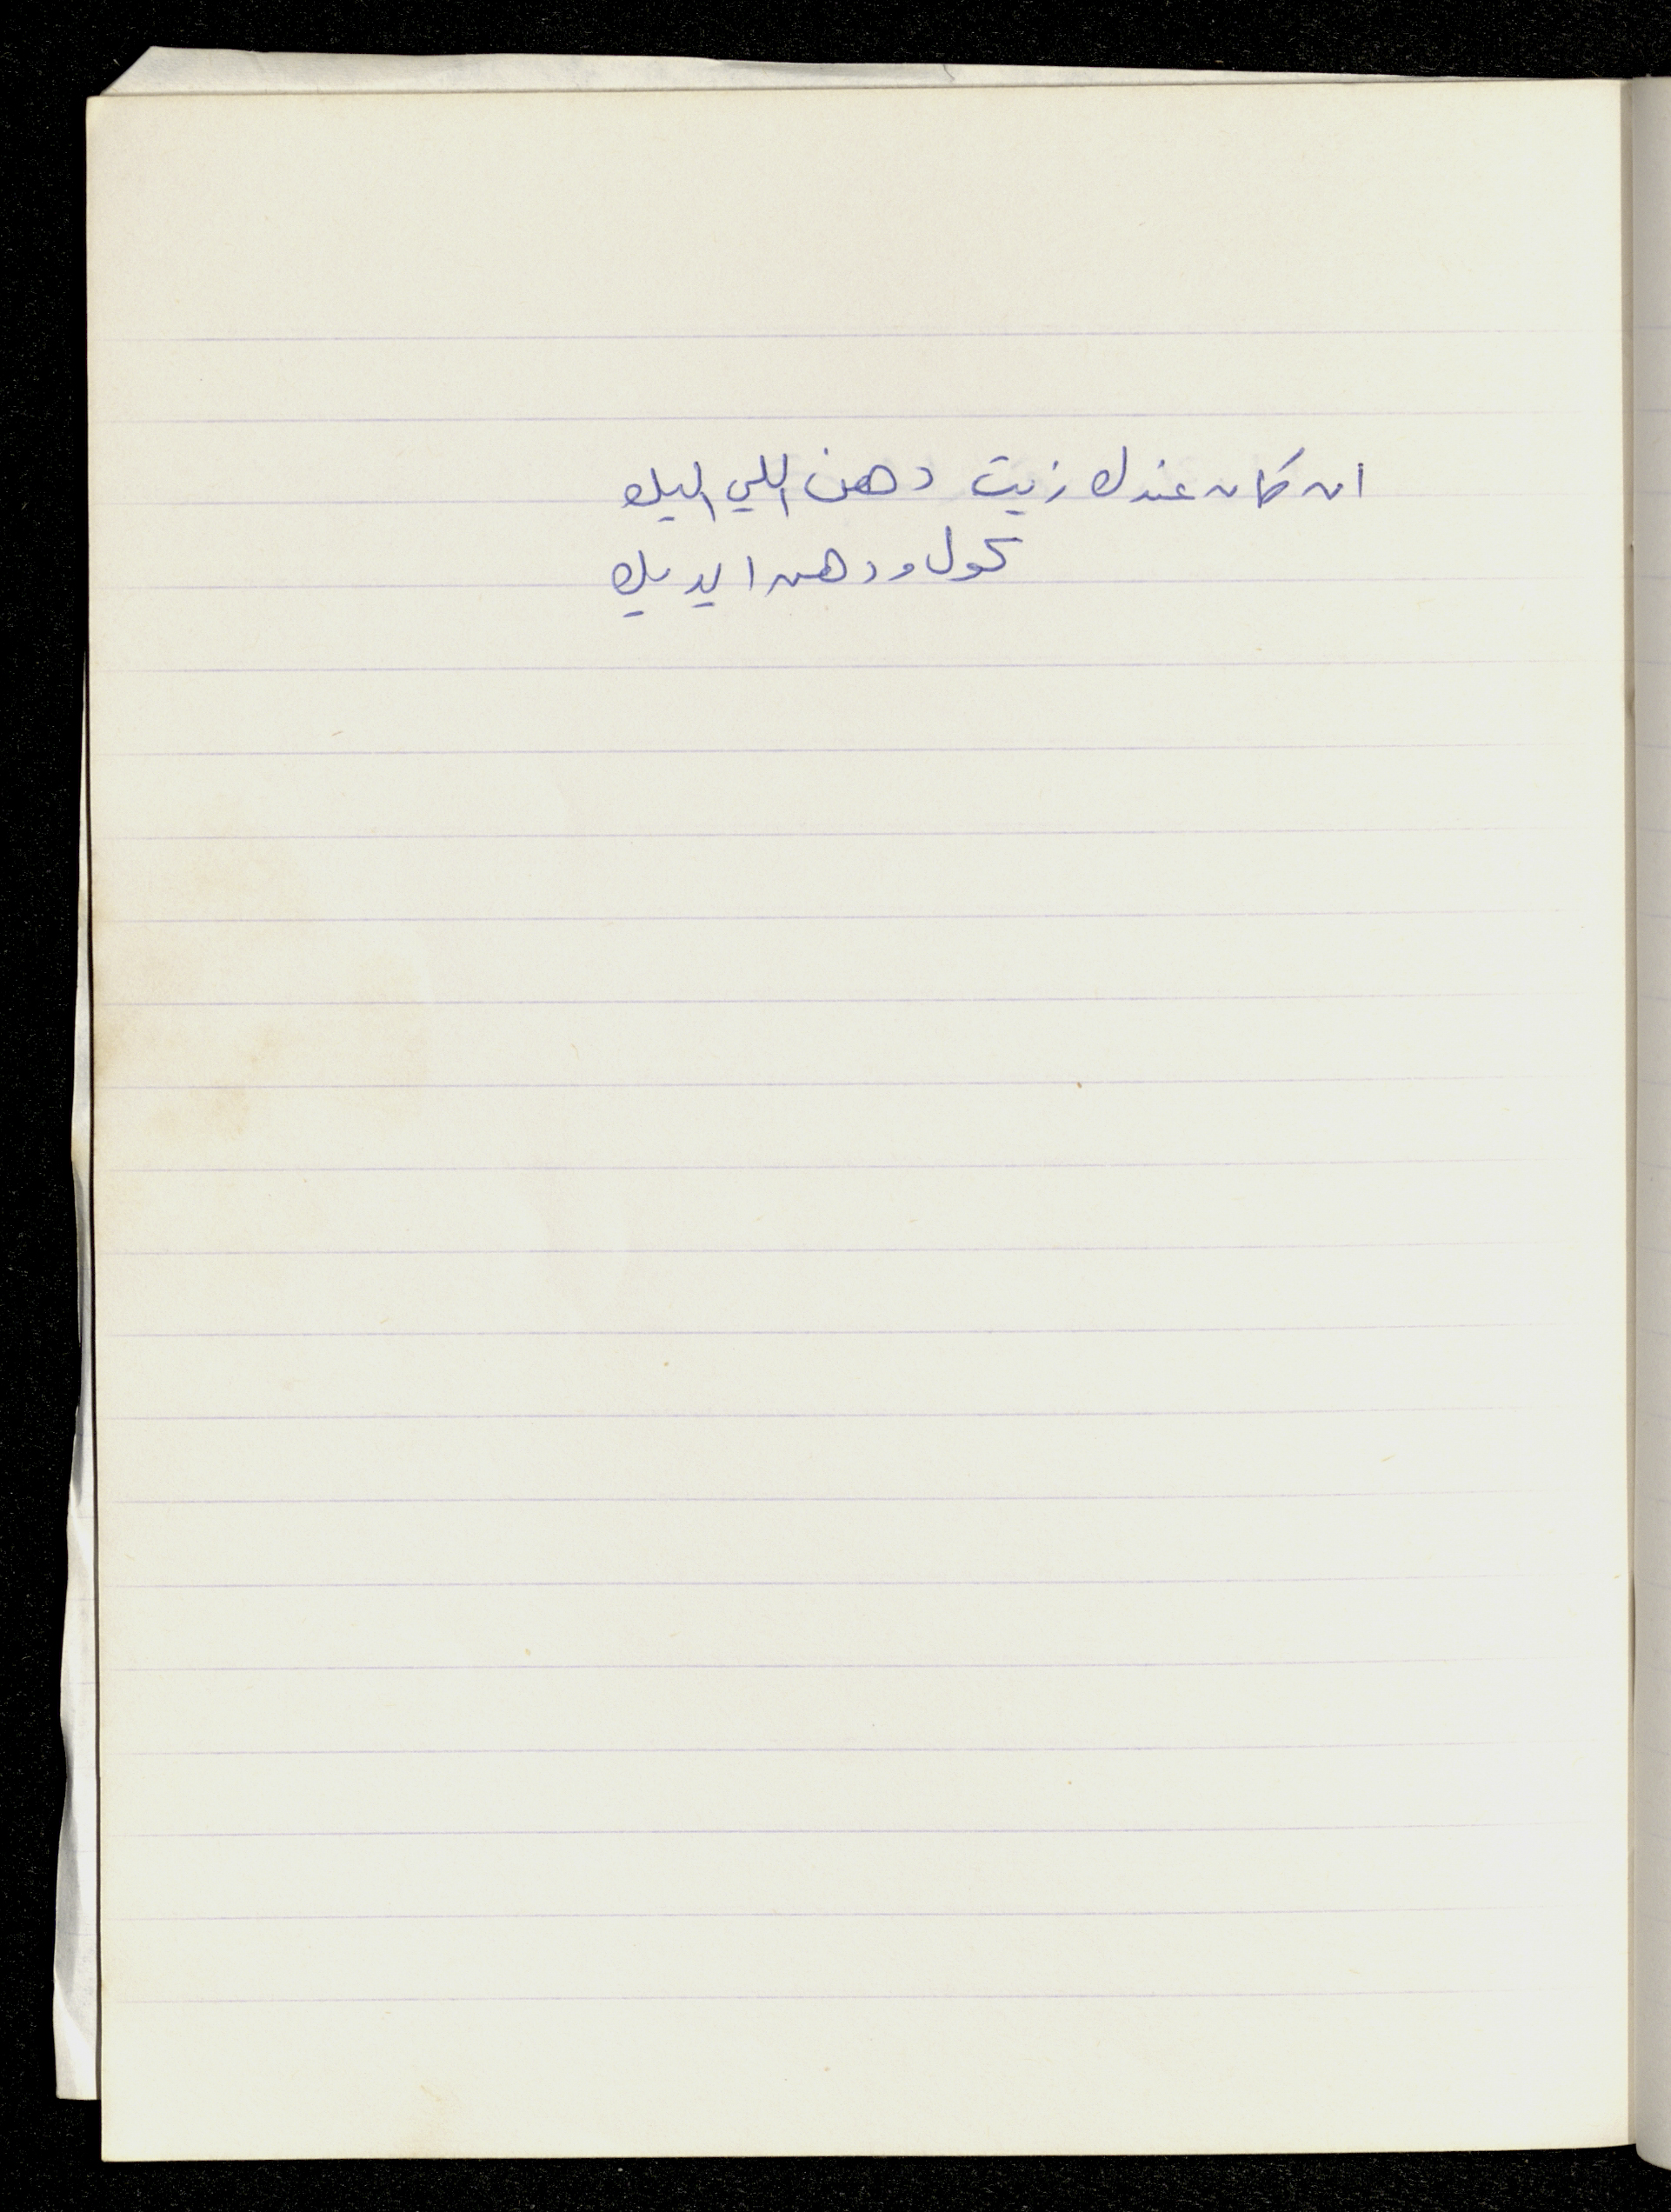 ان كان عندك زيت دهن اللي اليك
كول ودهن ايديك